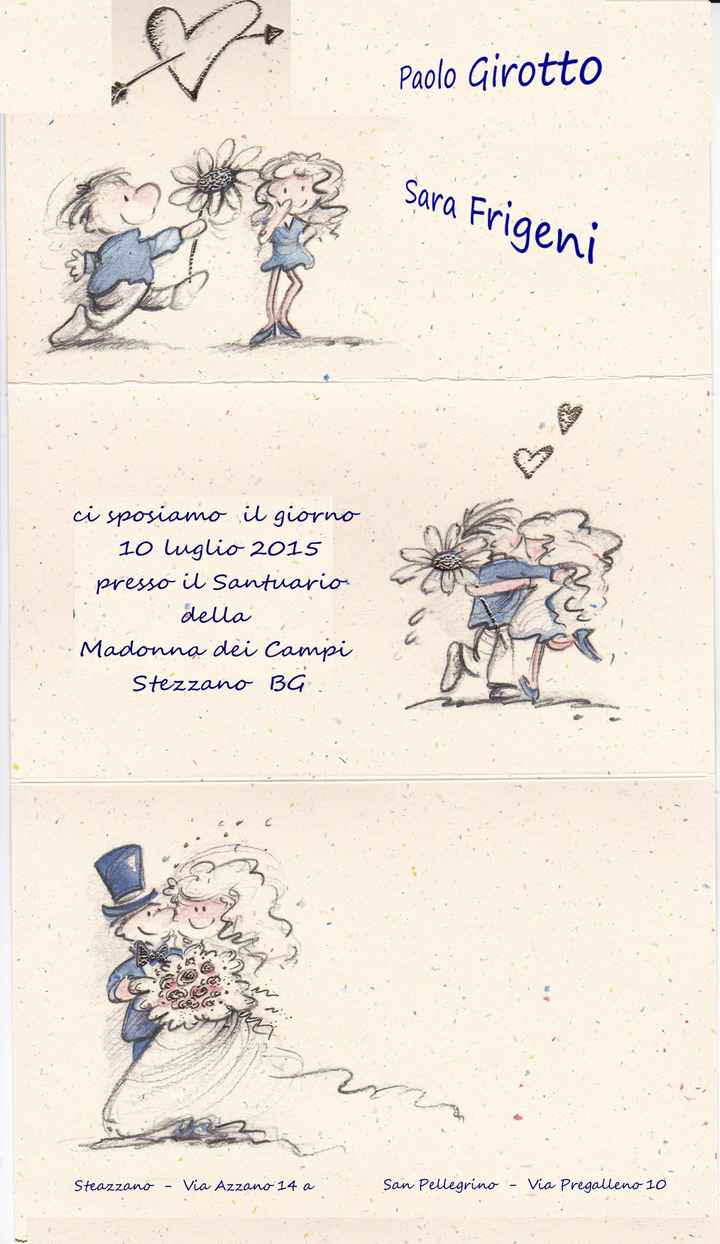 Paolo Girotto
Sara Frigeni
ci sposiamo il giorno
10 luglio 2015
presso il Santuario
della
Madonna dei Campi
Stezzano BG
Steazzano - Via Azzano 14 a
San Pellegrino - Via Pregalleno 10